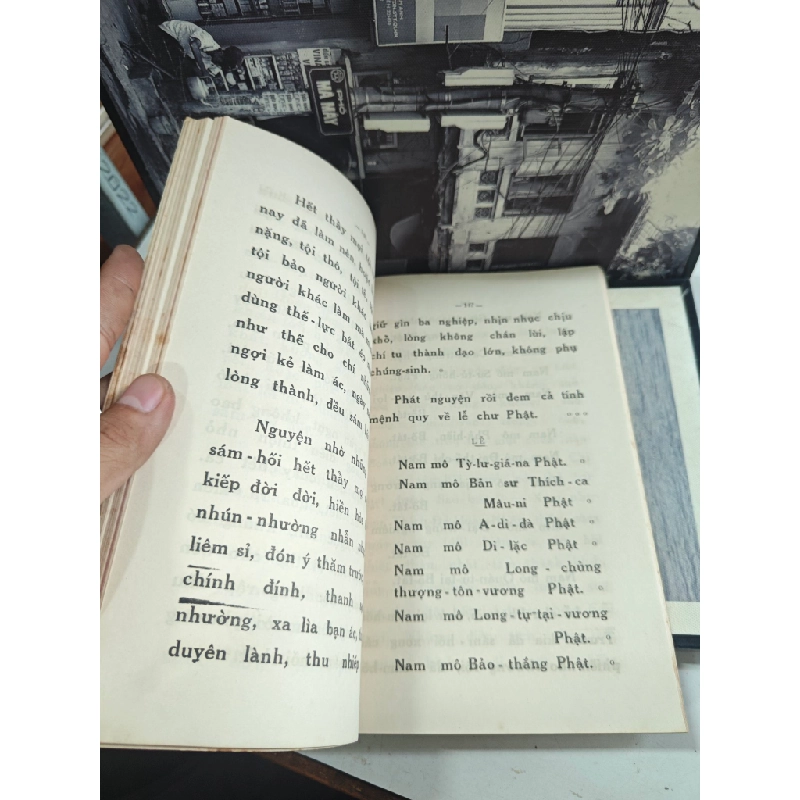 PHỐ
MA MAY
Hết thảy mọi
nay đã làm nên
nặng, tội thỏ, tội
tội bảo người khác
người khác làm mà
dùng thế-lực bắt
như thế cho chí
ngợi kẻ làm ác, ngày
lòng thành, đều sám
Nguyện nhờ
sám-hối hết thảy
kiếp đời đời, hiền
nhún-nhường nhẫn
liêm sỉ, đón ý thăm trước
chính đính, thanh
nhường, xa lìa bạn ác,
duyên lành, thu nhiếp
giữ gìn ba nghiệp, nhịn nhục chịu
khổ, lòng không chán lùi, lập
chí tu thành đạo lớn, không phụ
chúng-sinh. °
Phát nguyện rồi đem cả tính
mệnh quy về lễ chư Phật. °°°
Nam mô Tỳ-lư-giá-na Phật. °
Nam mô Bản sư Thích-ca
Mâu-ni Phật °
Nam mô A-di-dà Phật °
Nam mô Di-lặc Phật °
Nam mô Long-chủng
thượng-tôn-vương Phật. °
Nam mô Long-tự-tại-vương
Phật. °
Nam mô Bảo-thắng Phật. °